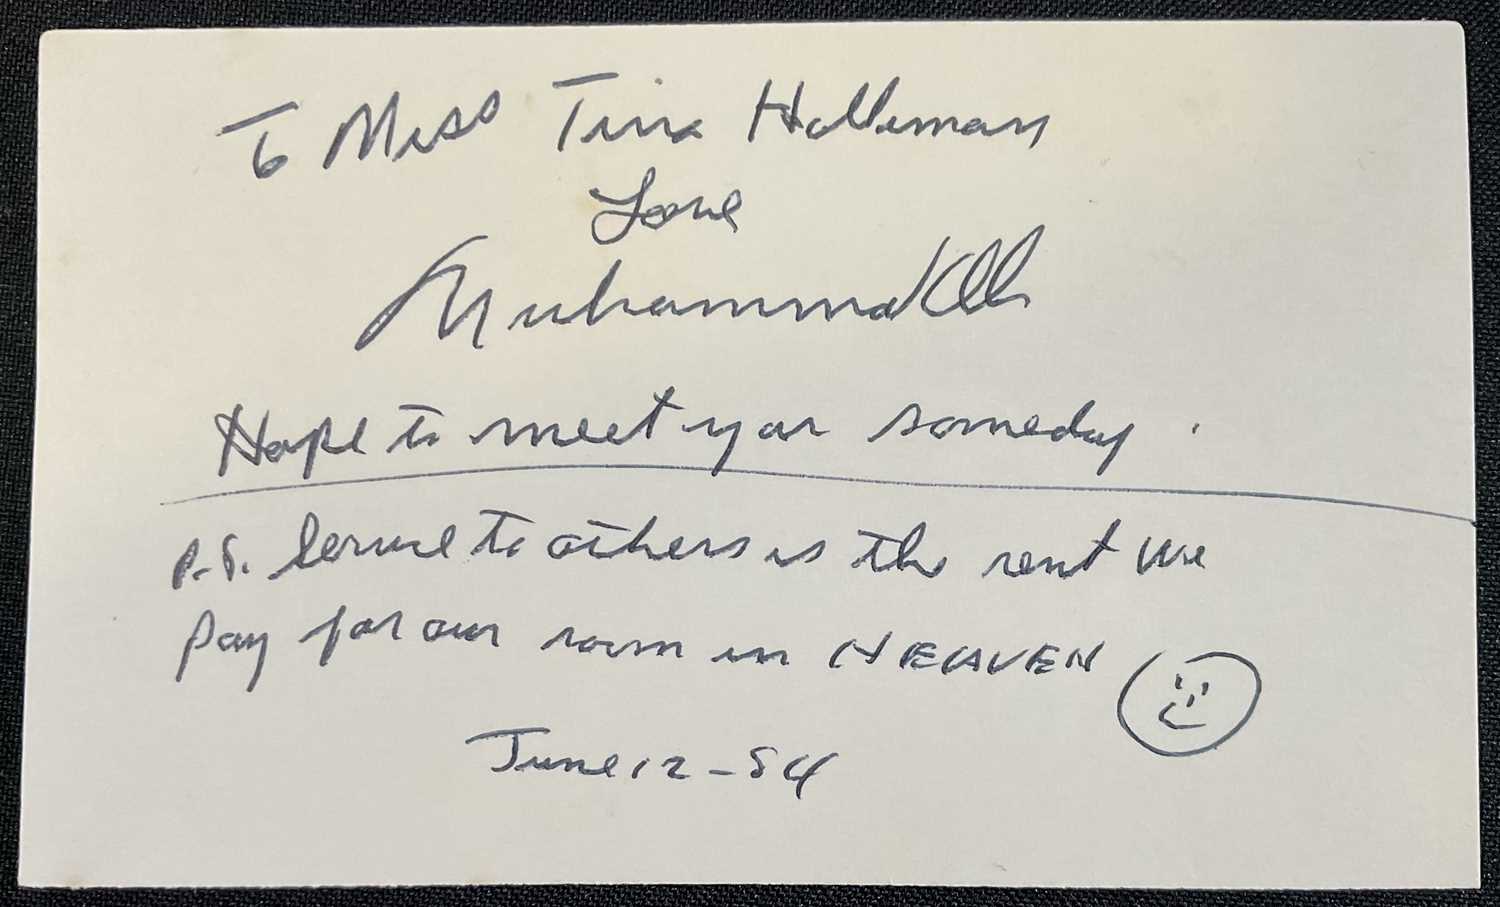 To Miss Tina Holliman
Love
Muhammad Ali
Hope to meet you someday.
P.S. Service to others is the rent we
pay for our room in HEAVEN
June 12-84